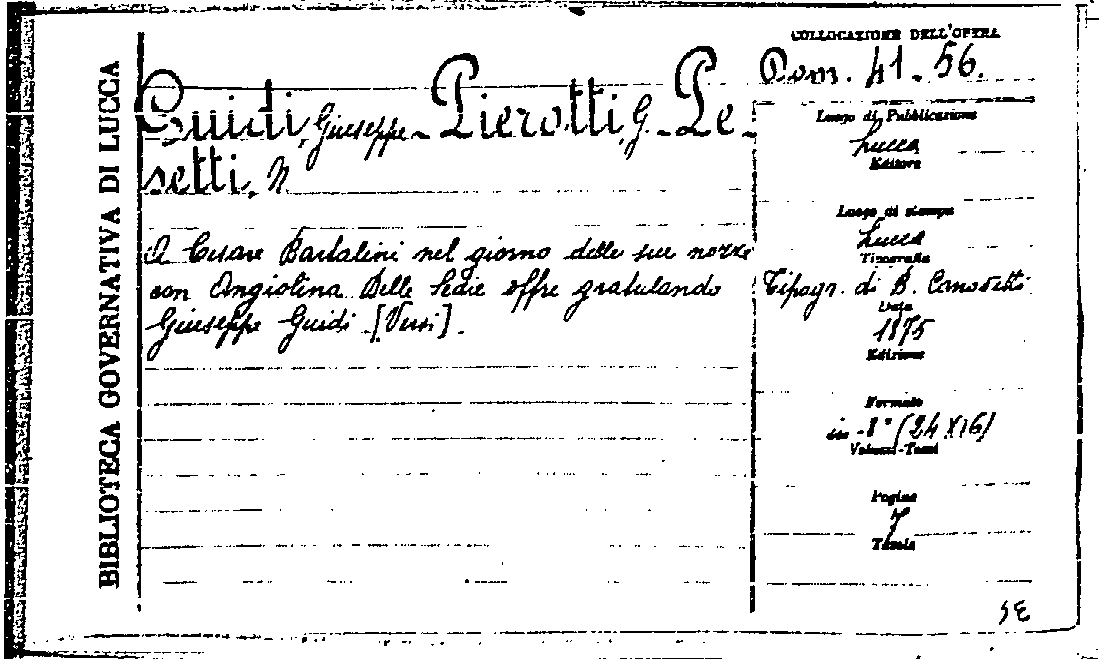 BIBLIOTECA GOVERNATIVA DI LUCCA
COLLOCAZIONE DELL'OPERA
Dom. 41. 56.
Guidi, Giuseppe - Pierotti, G - Pe-
setti, N
A Cesare Bartalini nel giorno delle sue nozze
con Angiolina Delle Sedie offre gratulando
Giuseppe Guidi [Versi].
Luogo di Pubblicazione
Lucca
Editore
Luogo di stampa
Lucca
Tipografia
Tipogr. di B. Canovetti
Data
1875
Edizione
Formato
in-8° (24X16)
Volumi-Tomi
Pagine
7
Tavole